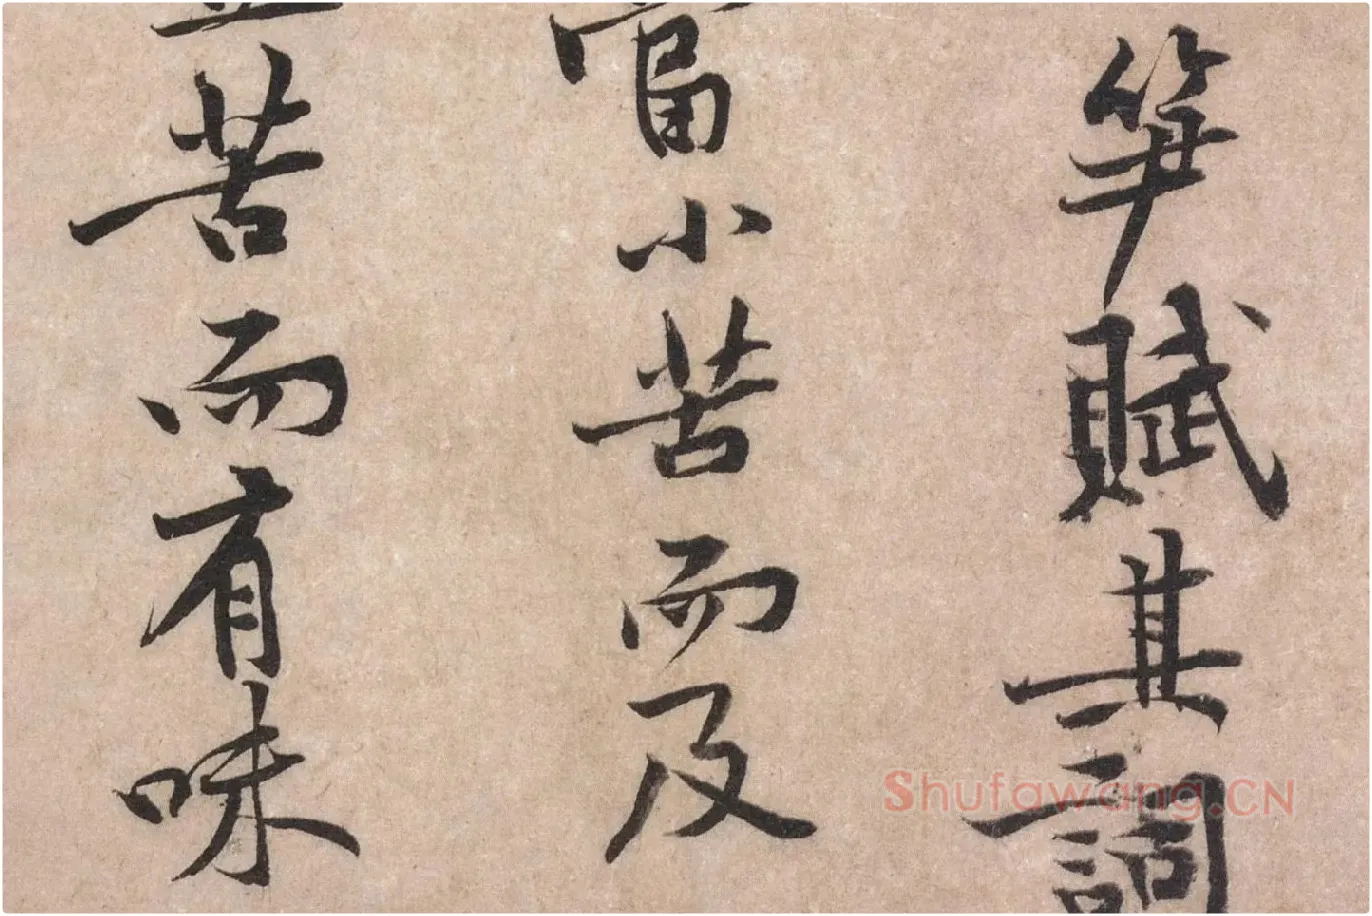 笋賦其詞
當小苦而及
苦而有味
Shufawang.CN